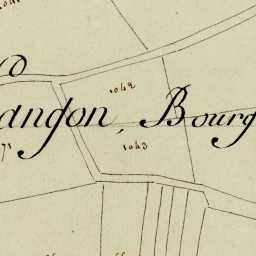 1042
angon, Bourg
71
1043